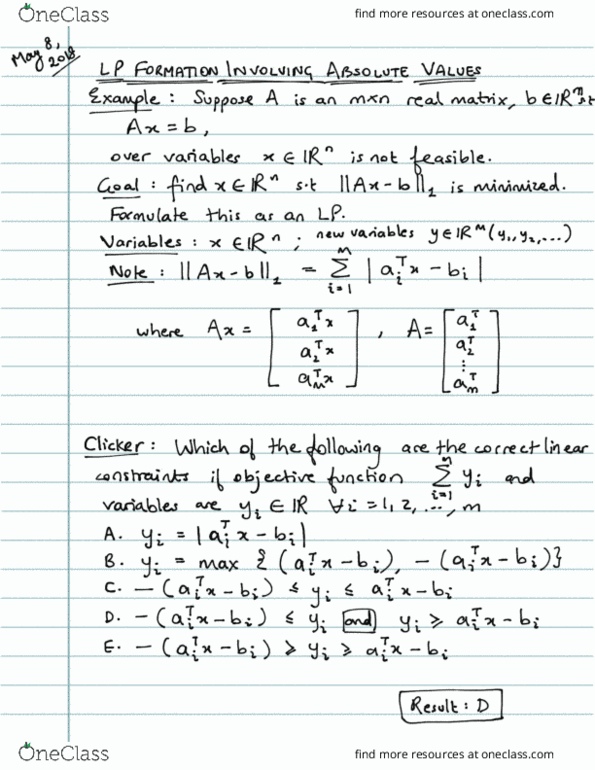 OneClass
find more resources at oneclass.com
May 8,
2018
LP FORMATION INVOLVING ABSOLUTE VALUES
Example : Suppose A is an m×n real matrix, b∈ℝᵐ s.t
Ax = b,
over variables x ∈ ℝⁿ is not feasible.
Goal : find x∈ℝⁿ s.t ||Ax-b||₁ is minimized.
Formulate this as an LP.
Variables : x ∈ℝⁿ ; new variables y∈ℝᵐ (y₁,y₂,...)
Note : ||Ax-b||₁ = Σᵢ₌₁ᵐ | aᵢᵀx - bᵢ |
where Ax = [ a₁ᵀx , A = [ a₁ᵀ
a₂ᵀx a₂ᵀ
⋮
aₘᵀx ] aₘᵀ ]
Clicker : Which of the following are the correct linear
constraints if objective function Σᵢ₌₁ᵐ yᵢ and
variables are yᵢ ∈ ℝ ∀i = 1, 2, ..., m
A. yᵢ = |aᵢᵀx - bᵢ|
B. yᵢ = max { (aᵢᵀx - bᵢ), - (aᵢᵀx - bᵢ)}
C. - (aᵢᵀx - bᵢ) ≤ yᵢ ≤ aᵢᵀx - bᵢ
D. - (aᵢᵀx - bᵢ) ≤ yᵢ and yᵢ ≥ aᵢᵀx - bᵢ
E. - (aᵢᵀx - bᵢ) ≥ yᵢ ≥ aᵢᵀx - bᵢ
Result : D
OneClass
find more resources at oneclass.com